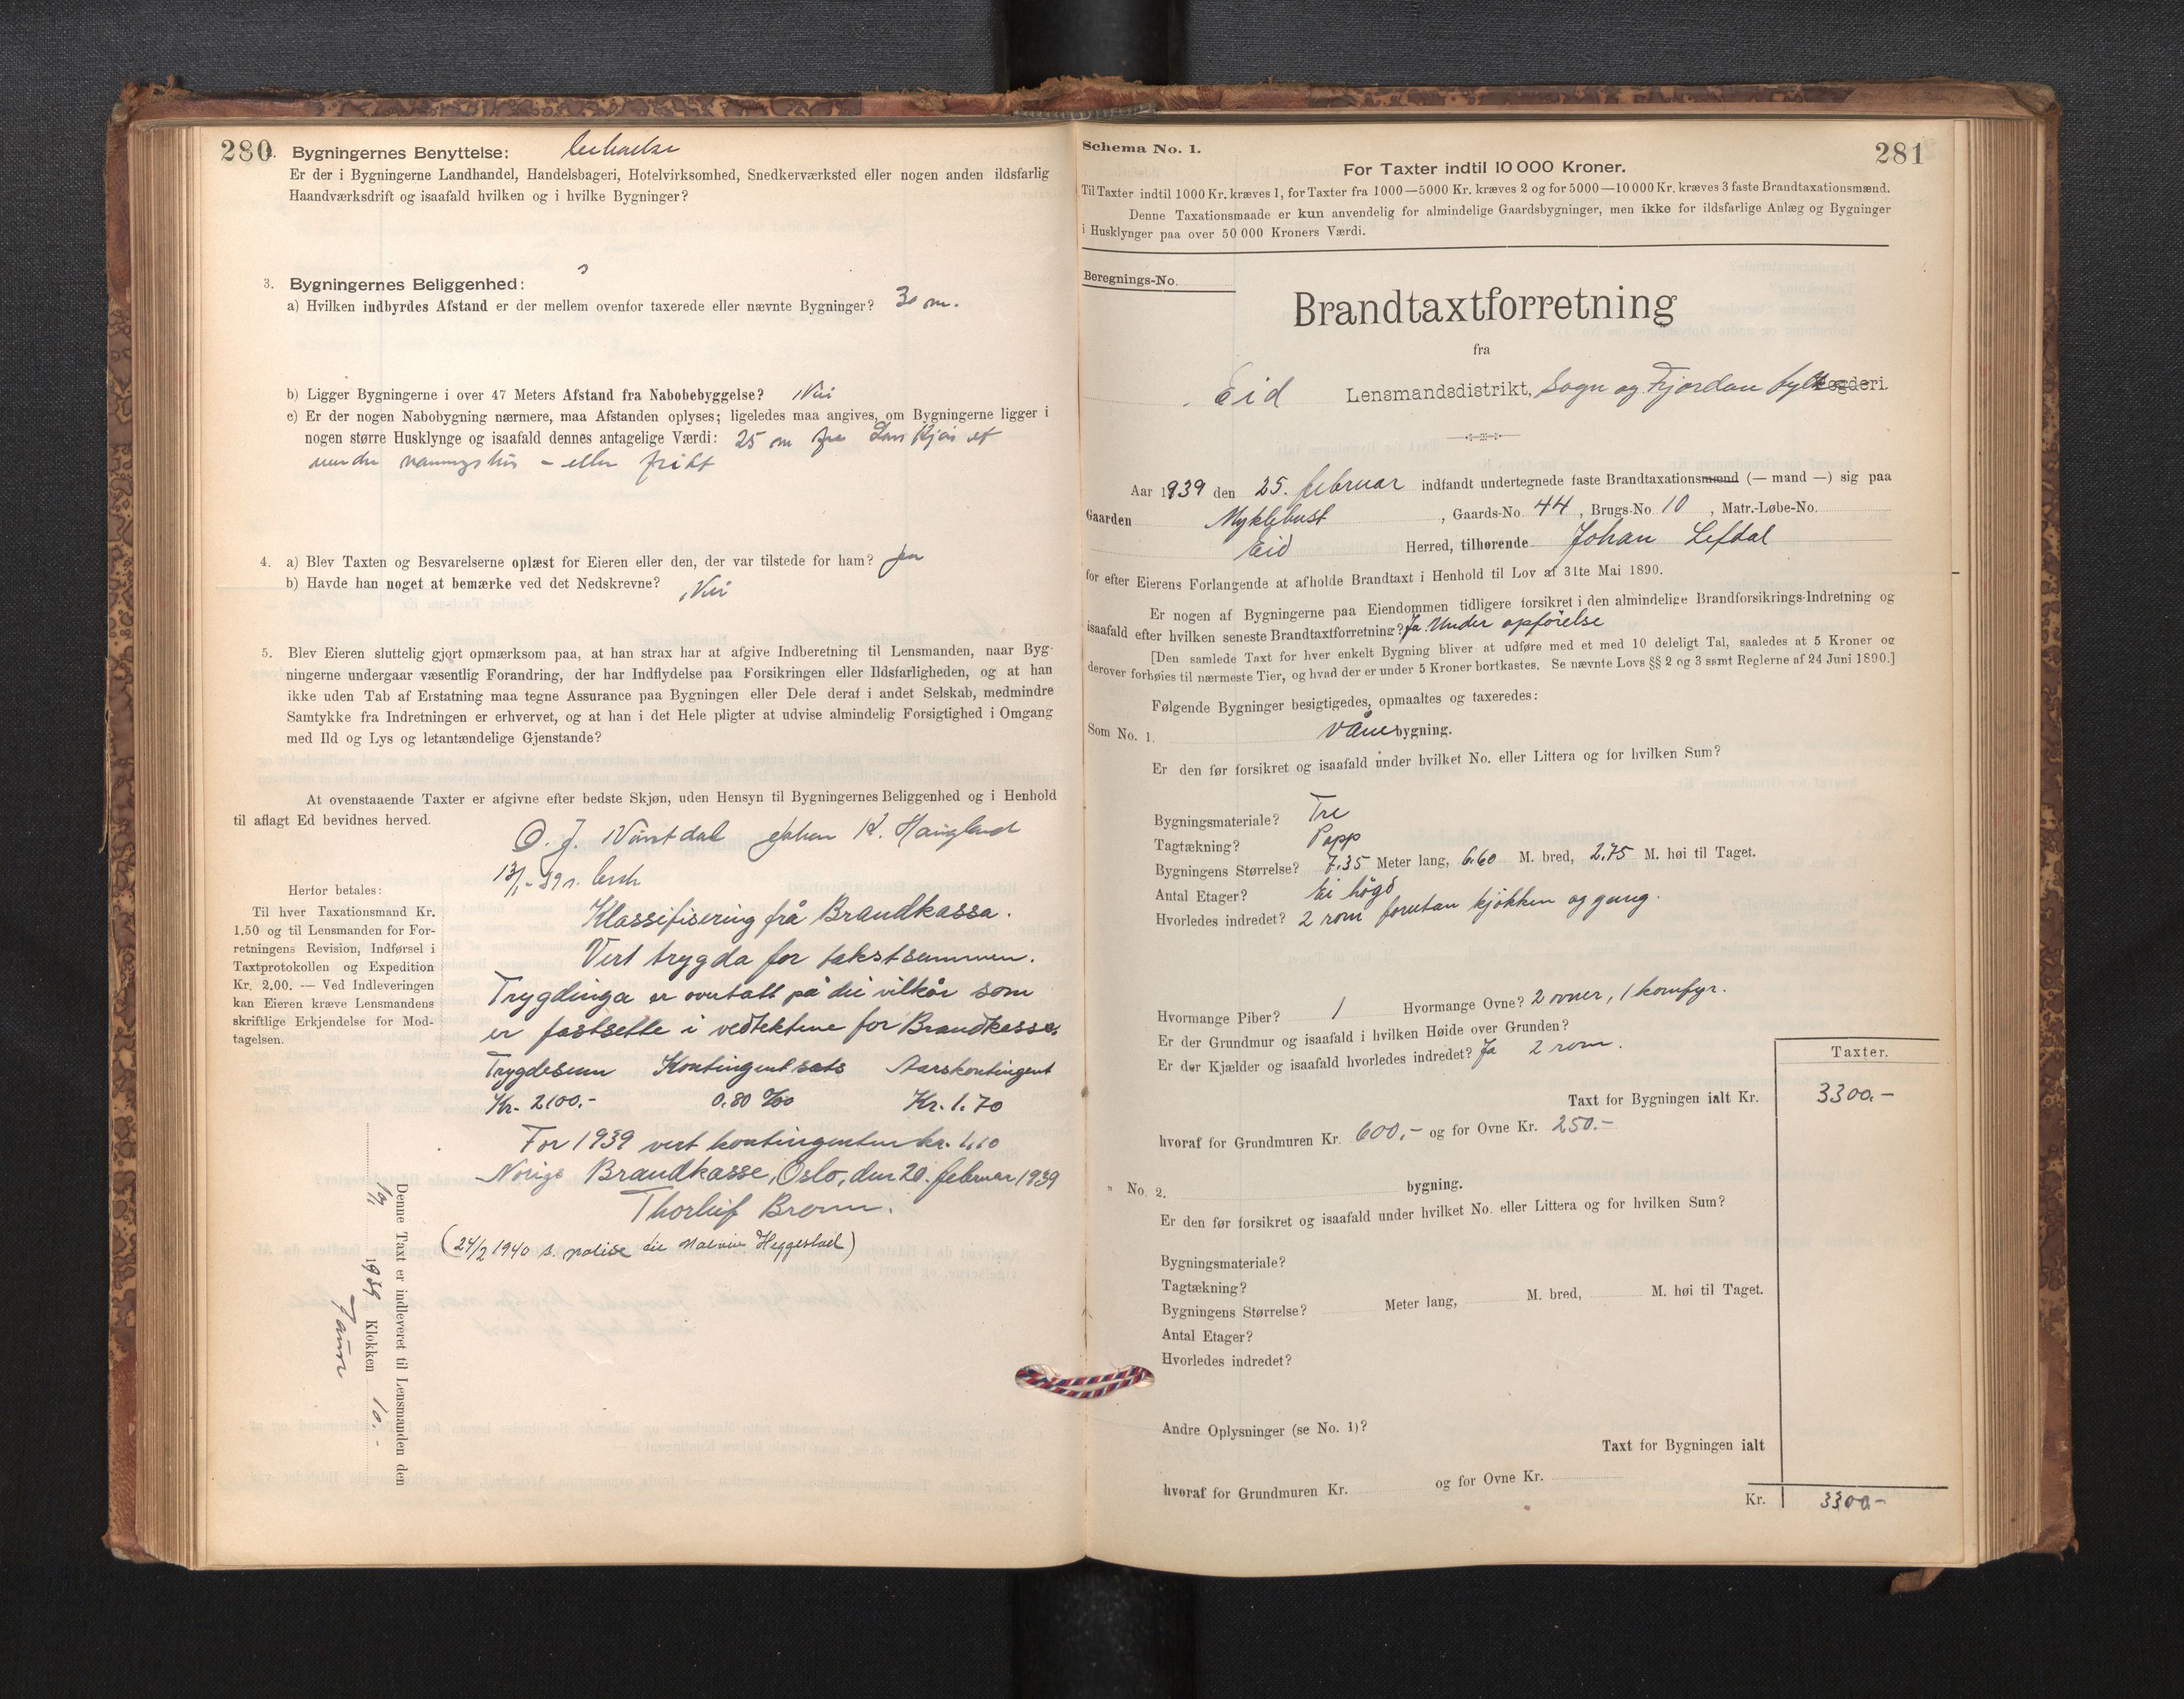 280
Bygningernes Benyttelse:
Er der i Bygningerne Landhandel, Handelsbageri, Hotelvirksomhed, Snedkerværksted eller nogen anden ildsfarlig
Haandværksdrift og isaafald hvilken og i hvilke Bygninger?
3. Bygningernes Beliggenhed:
a) Hvilken indbyrdes Afstand er der mellem ovenfor taxerede eller nævnte Bygninger? 30 m.
b) Ligger Bygningerne i over 47 Meters Afstand fra Nabobebyggelse? Nei
c) Er der nogen Nabobygning nærmere, maa Afstanden oplyses; ligeledes maa angives, om Bygningerne ligger i
nogen større Husklynge og isaafald dennes antagelige Værdi: 25 m fra Lars
– eller fritt
4. a) Blev Taxten og Besvarelserne oplæst for Eieren eller den, der var tilstede for ham? Ja
b) Havde han noget at bemærke ved det Nedskrevne? Nei
5. Blev Eieren sluttelig gjort opmærksom paa, at han strax har at afgive Indberetning til Lensmanden, naar Byg-
ningerne undergaar væsentlig Forandring, der har Indflydelse paa Forsikringen eller Ildsfarligheden, og at han
ikke uden Tab af Erstatning maa tegne Assurance paa Bygningen eller Dele deraf i andet Selskab, medmindre
Samtykke fra Indretningen er erhvervet, og at han i det Hele pligter at udvise almindelig Forsigtighed i Omgang
med Ild og Lys og letantændelige Gjenstande?
At ovenstaaende Taxter er afgivne efter bedste Skjøn, uden Hensyn til Bygningernes Beliggenhed og i Henhold
til aflagt Ed bevidnes herved.
O. J. K. Haugland
13/1-39 s.
Herfor betales:
Til hver Taxationsmand Kr.
1.50 og til Lensmanden for For-
retningens Revision, Indførsel i
Taxtprotokollen og Expedition
Kr. 2.00. — Ved Indleveringen
kan Eieren kræve Lensmandens
skriftlige Erkjendelse for Mod-
tagelsen.
Klassifisering frå Brandkassa.
Vert trygda for takstsummen.
Trygdinga er overtatt på dei vilkår som
er fastsette i vedtektene for Brandkassa.
Trygdesum Kontingentsats Aarskontingent
Kr. 2100.- 0.80 ‰ Kr. 1.70
For 1939 vert kontingenten kr. 1,10
Norigs Brandkasse, Oslo, den 20. februar 1939
Thorleif
(24/2 1940 s. polise til Heggestad)
Denne Taxt er indleveret til Lensmanden den
1939 Klokken 10.-
281
Schema No. 1.
For Taxter indtil 10 000 Kroner.
Til Taxter indtil 1000 Kr. kræves 1, for Taxter fra 1000—5000 Kr. kræves 2 og for 5000—10 000 Kr. kræves 3 faste Brandtaxationsmænd.
Denne Taxationsmaade er kun anvendelig for almindelige Gaardsbygninger, men ikke for ildsfarlige Anlæg og Bygninger
i Husklynger paa over 50 000 Kroners Værdi.
Beregnings-No.
Brandtaxtforretning
fra
Eid Lensmandsdistrikt, Sogn og Fjordane fylke ogderi.
Aar 1939 den 25. februar indfandt undertegnede faste Brandtaxationsmænd (— mand —) sig paa
Gaarden Myklebust, Gaards-No. 44, Brugs-No. 10, Matr.-Løbe-No.
Eid Herred, tilhørende Johan Lefdal
for efter Eierens Forlangende at afholde Brandtaxt i Henhold til Lov af 31te Mai 1890.
Er nogen af Bygningerne paa Eiendommen tidligere forsikret i den almindelige Brandforsikrings-Indretning og
isaafald efter hvilken seneste Brandtaxtforretning? Ja. Under opførelse
[Den samlede Taxt for hver enkelt Bygning bliver at udføre med et med 10 deleligt Tal, saaledes at 5 Kroner og
derover forhøies til nærmeste Tier, og hvad der er under 5 Kroner bortkastes. Se nævnte Lovs §§ 2 og 3 samt Reglerne af 24 Juni 1890.]
Følgende Bygninger besigtigedes, opmaaltes og taxeredes:
Som No. 1. Vånebygning.
Er den før forsikret og isaafald under hvilket No. eller Littera og for hvilken Sum?
Bygningsmateriale? Tre
Tagtækning? Papp
Bygningens Størrelse? 7.35 Meter lang, 6.60 M. bred, 2.75 M. høi til Taget.
Antal Etager? Ei høgd
Hvorledes indredet? 2 rom forutan kjøkken og gang.
Hvormange Piber? 1 Hvormange Ovne? 2 ovner, 1 komfyr.
Er der Grundmur og isaafald i hvilken Høide over Grunden?
Er der Kjælder og isaafald hvorledes indredet? Ja 2 rom.
Taxter.
Taxt for Bygningen ialt Kr. 3300.-
hvoraf for Grundmuren Kr. 600,- og for Ovne Kr. 250.-
„ No. 2. bygning.
Er den før forsikret og isaafald under hvilket No. eller Littera og for hvilken Sum?
Bygningsmateriale?
Tagtækning?
Bygningens Størrelse? Meter lang, M. bred, M. høi til Taget.
Antal Etager?
Hvorledes indredet?
Andre Oplysninger (se No. 1)?
Taxt for Bygningen ialt
hvoraf for Grundmuren Kr. og for Ovne Kr.
Kr. 3300-